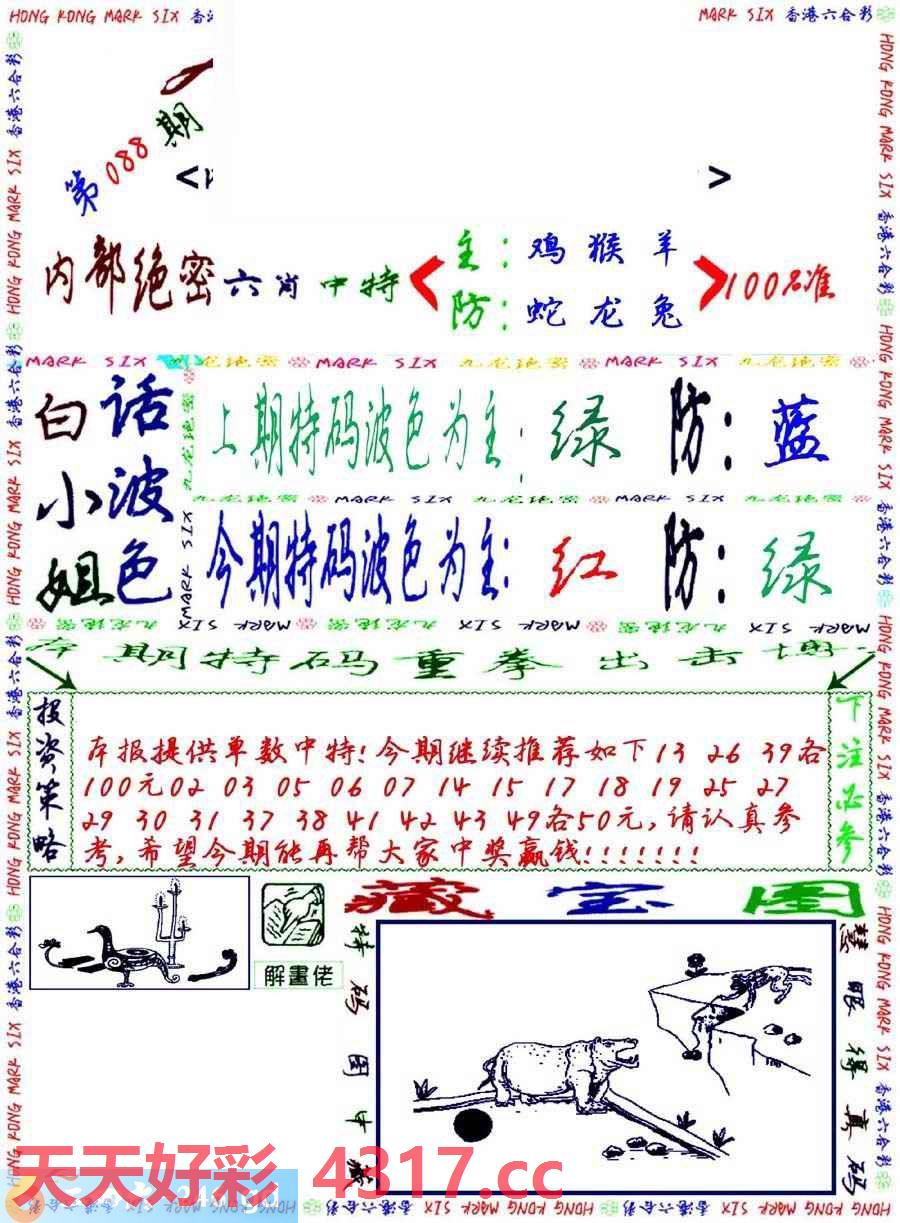 HONG KONG MARK SIX 香
MARK SIX 香港六合彩
第088期
< >
内部绝密六肖中特<主:鸡猴羊>100%准
防:蛇龙兔
MARK SIX 九龙绝密 MARK SIX 九龙绝密 MARK SIX 九龙绝密
白话
小波
姐色
上期特码波色为主:绿 防:蓝
九龙绝密 MARK SIX 九龙绝密 MARK SIX
今期特码波色为主:红 防:绿
MARK SIX 九龙绝密 MARK SIX 九龙绝密 MARK SIX
本期特码重拳出击
投资策略
本报提供单数中特!今期继续推荐如下13 26 39各
100元02 03 05 06 07 14 15 17 18 19 25 27
29 30 31 37 38 41 42 43 49各50元,请认真参
考,希望今期能再帮大家中奖赢钱!!!!!!!
下注必参
藏宝图
解畫佬
特码图中
慧眼得真码
天天好彩 4317.cc
HONG KONG MARK SIX 香港六合彩